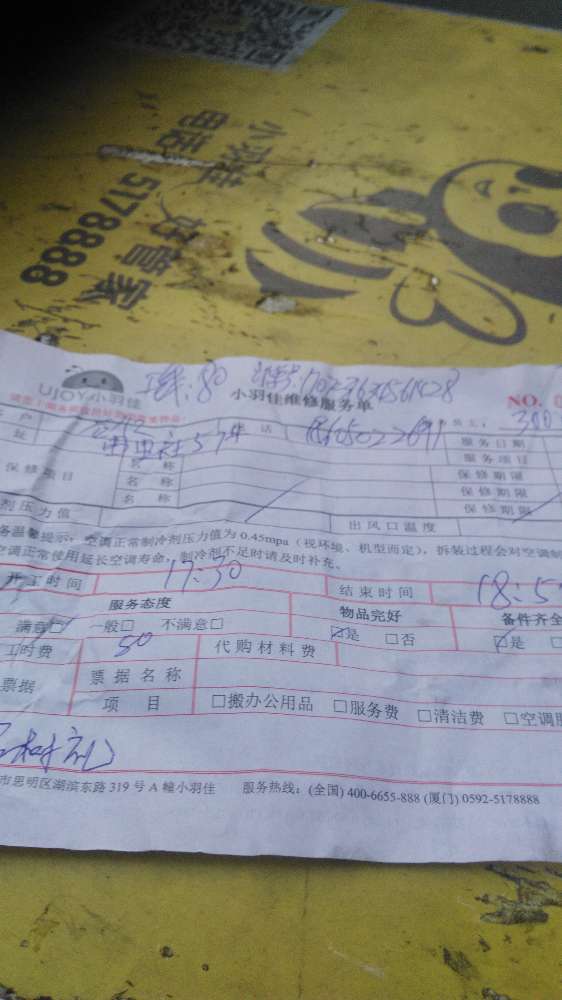 小羽佳 好管家
电话 5178888
UJOY小羽佳
小羽佳维修服务单
NO.
80
300
户
址
话
服务日期
服务项目
保修项目
名 称
名 称
名 称
保修期限
保修期限
保修期限
剂压力值
出风口温度
务温馨提示：空调正常制冷剂压力值为 0.45mpa（视环境、机型而定），拆装过程会对空调制
空调正常使用延长空调寿命，制冷剂不足时请及时补充。
开工时间 17:30 结束时间 18:5
服务态度 物品完好 备件齐全
满意□ 一般□ 不满意□ □是 □否 □是
工时费 50 代购材料费
票据 票据名称
项 目 □搬办公用品 □服务费 □清洁费 □空调
市思明区湖滨东路 319 号 A 幢小羽佳 服务热线：(全国) 400-6655-888 (厦门) 0592-5178888